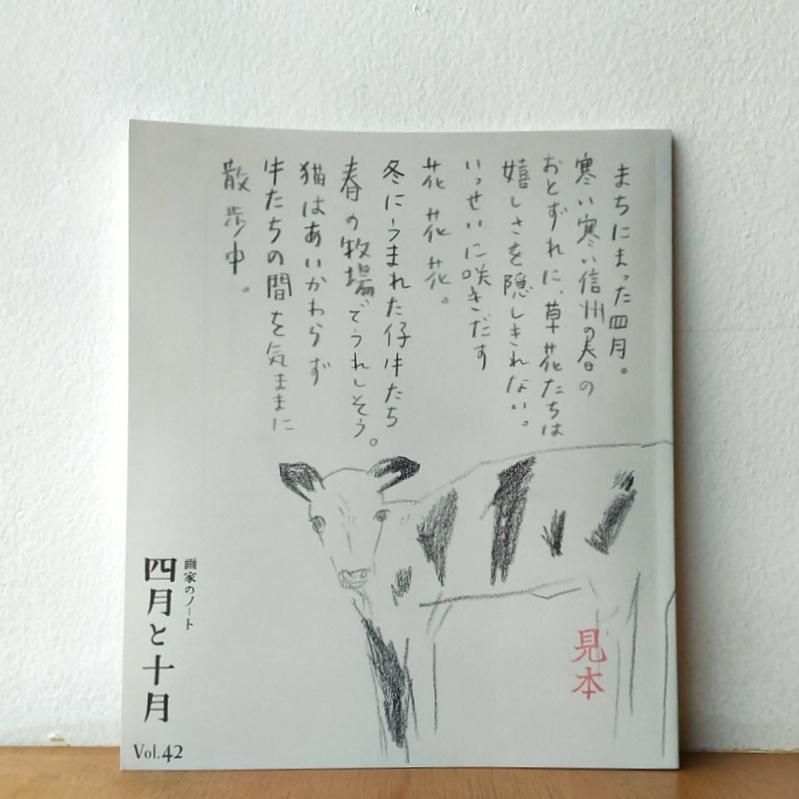 まちにまった四月。
寒い寒い信州の春の
おとずれに、草花たちは
嬉しさを隠しきれない。
いっせいに咲きだす
花花花。
冬にうまれた仔牛たち
春の牧場でうれしそう。
猫はあいかわらず
牛たちの間を気ままに
散歩中。
画家のノート
四月と十月
Vol.42
見本